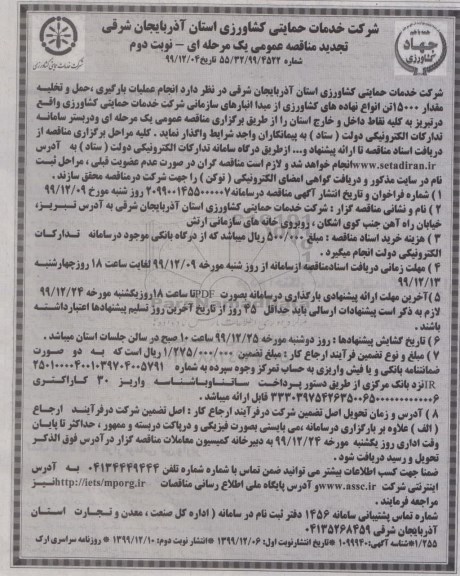 شرکت خدمات حمایتی کشاورزی استان آذربایجان شرقی
تجدید مناقصه عمومی یک مرحله ای – نوبت دوم
شماره ۵۵/۳۲/۹۹/۴۵۲۲ تاریخ ۹۹/۱۲/۰۴
جهاد
کشاورزی
شرکت خدمات حمایتی کشاورزی
شرکت خدمات حمایتی کشاورزی استان آذربایجان شرقی در نظر دارد انجام عملیات بارگیری ،حمل و تخلیه
مقدار ۱۵۰۰۰تن انواع نهاده های کشاورزی از مبدا انبارهای سازمانی شرکت خدمات حمایتی کشاورزی واقع
درتبریز به کلیه نقاط داخل و خارج استان را از طریق برگزاری مناقصه عمومی یک مرحله ای ودربستر سامانه
تدارکات الکترونیکی دولت ( ستاد ) به پیمانکاران واجد شرایط واگذار نماید . کلیه مراحل برگزاری مناقصه از
دریافت اسناد مناقصه تا ارائه پیشنهاد و... ازطریق درگاه سامانه تدارکات الکترونیکی دولت ( ستاد ) به آدرس
www.setadiran.irانجام خواهد شد و لازم است مناقصه گران در صورت عدم عضویت قبلی ، مراحل ثبت
نام در سایت مذکور و دریافت گواهی امضای الکترونیکی ( توکن ) را جهت شرکت درمناقصه محقق سازند .
۱ ) شماره فراخوان و تاریخ انتشار آگهی مناقصه درسامانه۲۰۹۹۰۰۱۴۵۵۰۰۰۰۰۷ روز شنبه مورخ ۹۹/۱۲/۰۹
۲ ) نام و نشانی مناقصه گزار : شرکت خدمات حمایتی کشاورزی استان آذربایجان شرقی به آدرس تبریز،
خیابان راه آهن جنب کوی اشکان ، روبروی خانه های سازمانی ارتش
۳ ) هزینه خرید اسناد مناقصه : مبلغ ۵۰۰/۰۰۰ ریال میباشد که از درگاه بانکی موجود درسامانه تدارکات
الکترونیکی دولت انجام میگیرد .
۴ ) مهلت زمانی دریافت اسنادمناقصه ازسامانه از روز شنبه مورخه ۹۹/۱۲/۰۹ لغایت ساعت ۱۸ روزچهارشنبه
۹۹/۱۲/۱۳
۵ )آخرین مهلت ارائه پیشنهادی بارگذاری درسامانه بصورت PDFتا ساعت ۱۸روزیکشنبه مورخه ۹۹/۱۲/۲۴
لازم به ذکر است پیشنهادات ارسالی باید حداقل ۴۵ روز از تاریخ آخرین روز تسلیم پیشنهادها اعتبارداشته
باشند .
۶ ) تاریخ گشایش پیشنهادها : روز دوشنبه مورخه ۹۹/۱۲/۲۵ ساعت ۱۰ صبح در سالن جلسات استان میباشد .
۷ ) مبلغ و نوع تضمین فرآیند ارجاع کار : مبلغ تضمین ۱/۲۷۵/۰۰۰/۰۰۰ ریال است که به دو صورت
ضمانتنامه بانکی و یا فیش واریزی به حساب تمرکز وجوه سپرده به شماره
IRنزد بانک مرکزی از طریق دستور پرداخت ساتنا وباشناسه واریز ۳۰ کاراکتری
قابل ارائه میباشد .
۸ ) آدرس و زمان تحویل اصل تضمین شرکت درفرآیند ارجاع کار : اصل تضمین شرکت درفرآیند ارجاع
( الف ) علاوه بر بارگزاری درسامانه ،می بایستی بصورت فیزیکی و درپاکت دربسته و ممهور ، حداکثر تا پایان
وقت اداری روز یکشنبه مورخه ۹۹/۱۲/۲۴ به دبیرخانه کمیسیون معاملات مناقصه گزار در آدرس فوق الذکر
تحویل و رسید دریافت شود .
ضمنا جهت کسب اطلاعات بیشتر می توانید ضمن تماس با شماره تلفن ۰۴۱۳۴۴۴۹۴۴۴ به آدرس
اینترنتی شرکت www.assc.irو آدرس پایگاه ملی اطلاع رسانی مناقصات http://iets/mporg.irنیز
مراجعه فرمایند .
شماره تماس پشتیبانی سامانه ۱۴۵۶ دفتر ثبت نام در سامانه ( اداره کل صنعت ، معدن و تجارت استان
آذربایجان شرقی ۰۴۱۳۵۲۶۸۴۵۹
۱/۲۵۵*شناسه آگهی:۱۰۹۹۹۴۰ *تاریخ انتشارنوبت اول: ۱۳۹۹/۱۲/۰۶ *انتشار نوبت دوم: ۱۳۹۹/۱۲/۱۰ * روزنامه سراسری ارک